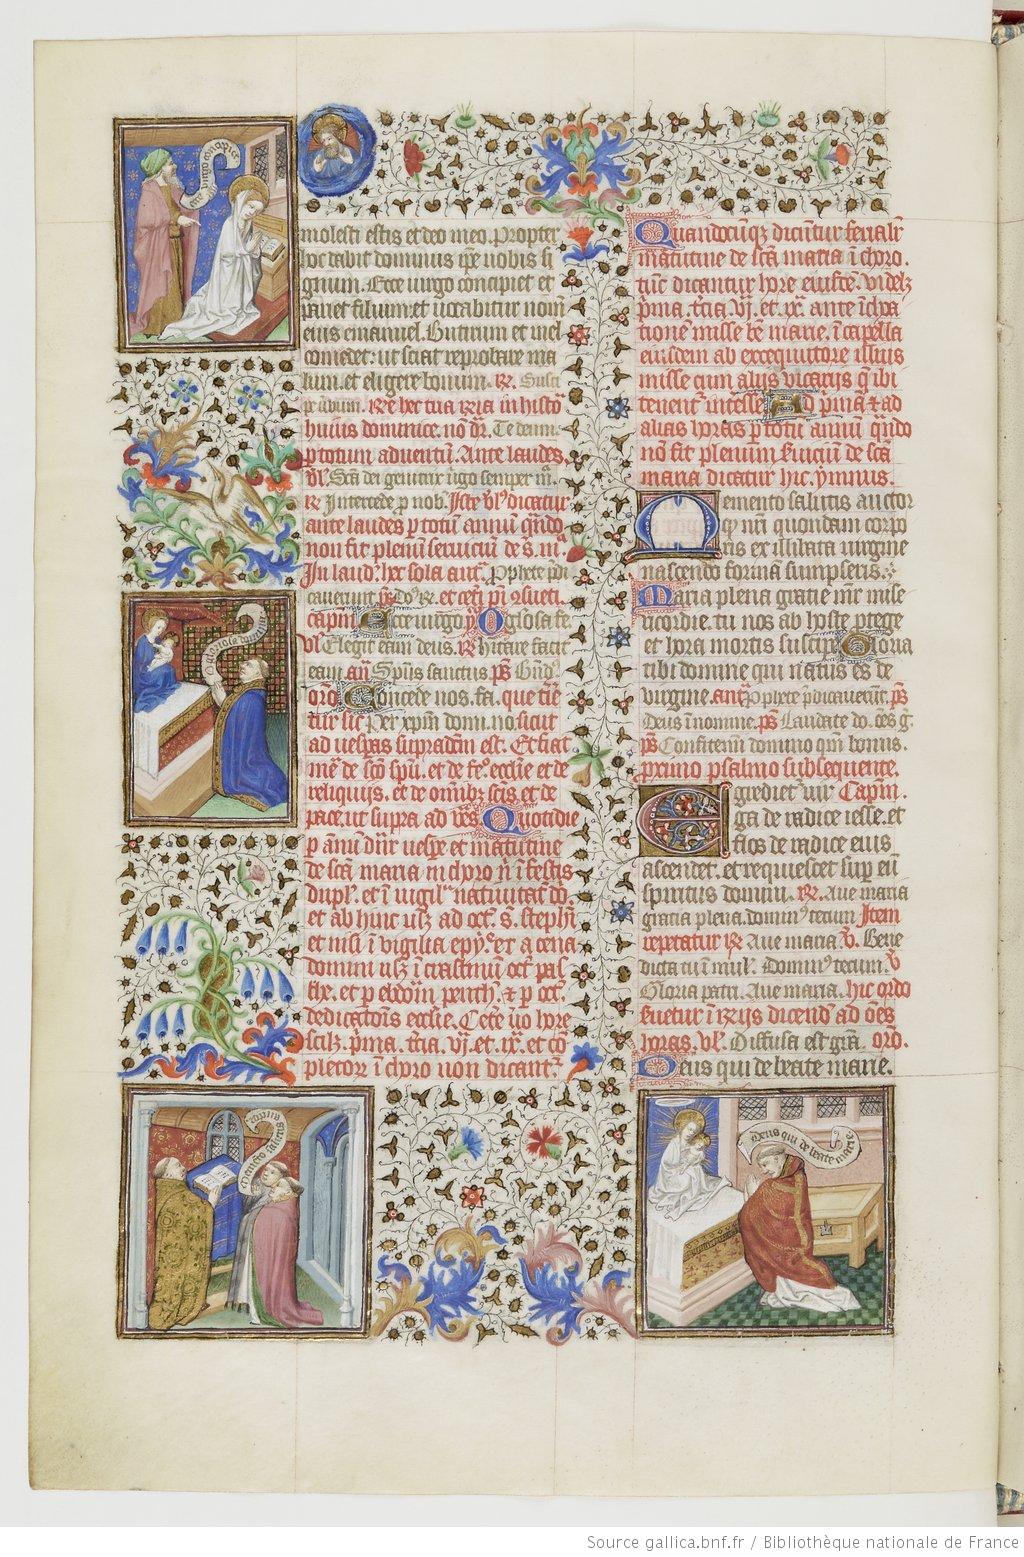 molesti estis et deo meo. Propter
hoc dabit dominus ipe nobis si
gnum. Ecce uirgo concipiet et
pariet filium et uocabitur nom
eius emanuel. Butirum et mel
comedet: ut sciat reprobare ma
lum. et eligere bonum. R. Susci
huius dominice. no dr. Te deum.
p totum aduentum. Ante laudes.
Vl. Sca dei genitrix uirgo semper m.
R Intercede p nob. Iste vl dicatur
ante laudes p totu annu qndo
non fit plenu seruiciu de s. m.
In laud. hec sola ant. Pphete pdi
capitm Ecce uirgo y O glosa te.
Vl Elegit eam deus. R Hitare facit
eam an Spus sanctus. ps
oro Concede nos. fa. que tue
tur sic Per xpm domi. no sicut
ad uespas supradcm est. Et fiat
me de sco spu. et de fo. ecclie et de
reliquiis. et de omibz scis et de
pace. ut supra ad ves Quotidie
p annu diir uespe et matutine
de sca maria in choro ni in festis
dupl. et i uigil natiuitat do.
et ab hinc usz ad oct. s. stephi
et nisi i vigilia epy. et a cena
domini usz i crastinu oct pas
che. et p ebdom penth. et p oct
dedicatois ecclie. Cete uo hore
scilz. pma. tcia. vj. et. ix. et co
pletor i choro non dicant.
Quandocuqz dicutur ferialr
matutine de sca maria i choro.
tuc dicantur hore eiusde. videlz
pma. tcia. vj. et. ix. ante icha
tione misse be marie. i capella
eiusdem ab excequutore illius
misse cum aliis vicariis q ibi
tenent interesse Ad pma et ad
alias horas p totu annu qndo
no fit plenum seruiciu de sca
maria dicatur hic ymnus.
Memento salutis auctor
q nri quondam corpo
ris ex illibata uirgine
nascendo forma sumpseris.
Maria plena gratie mr mise
ricordie. tu nos ab hoste ptege
et hora mortis suscipe Gloria
tibi domine qui natus es de
uirgine. ant Pphete pdicauerut. ps
Deus i nomine. ps Laudate do. oes g.
ps Confitemi domino qm bonus.
pximo psalmo subsequente.
Egrediet uir Capm.
ga de radice iesse. et
flos de radice eius
ascendet. et requiescet sup eu
spiritus domini. R. Aue maria
gratia plena. domin tecum. Item
repetatur R Aue maria V. Bene
dicta tu i mul. Domin tecum. V
Gloria patri. Aue maria. hic ordo
suetur i Rziis dicend ad oes
horas. vl. Diffusa est gra. oro.
Deus qui de beate marie.
Deus qui de beate marie
Source gallica.bnf.fr / Bibliothèque nationale de France